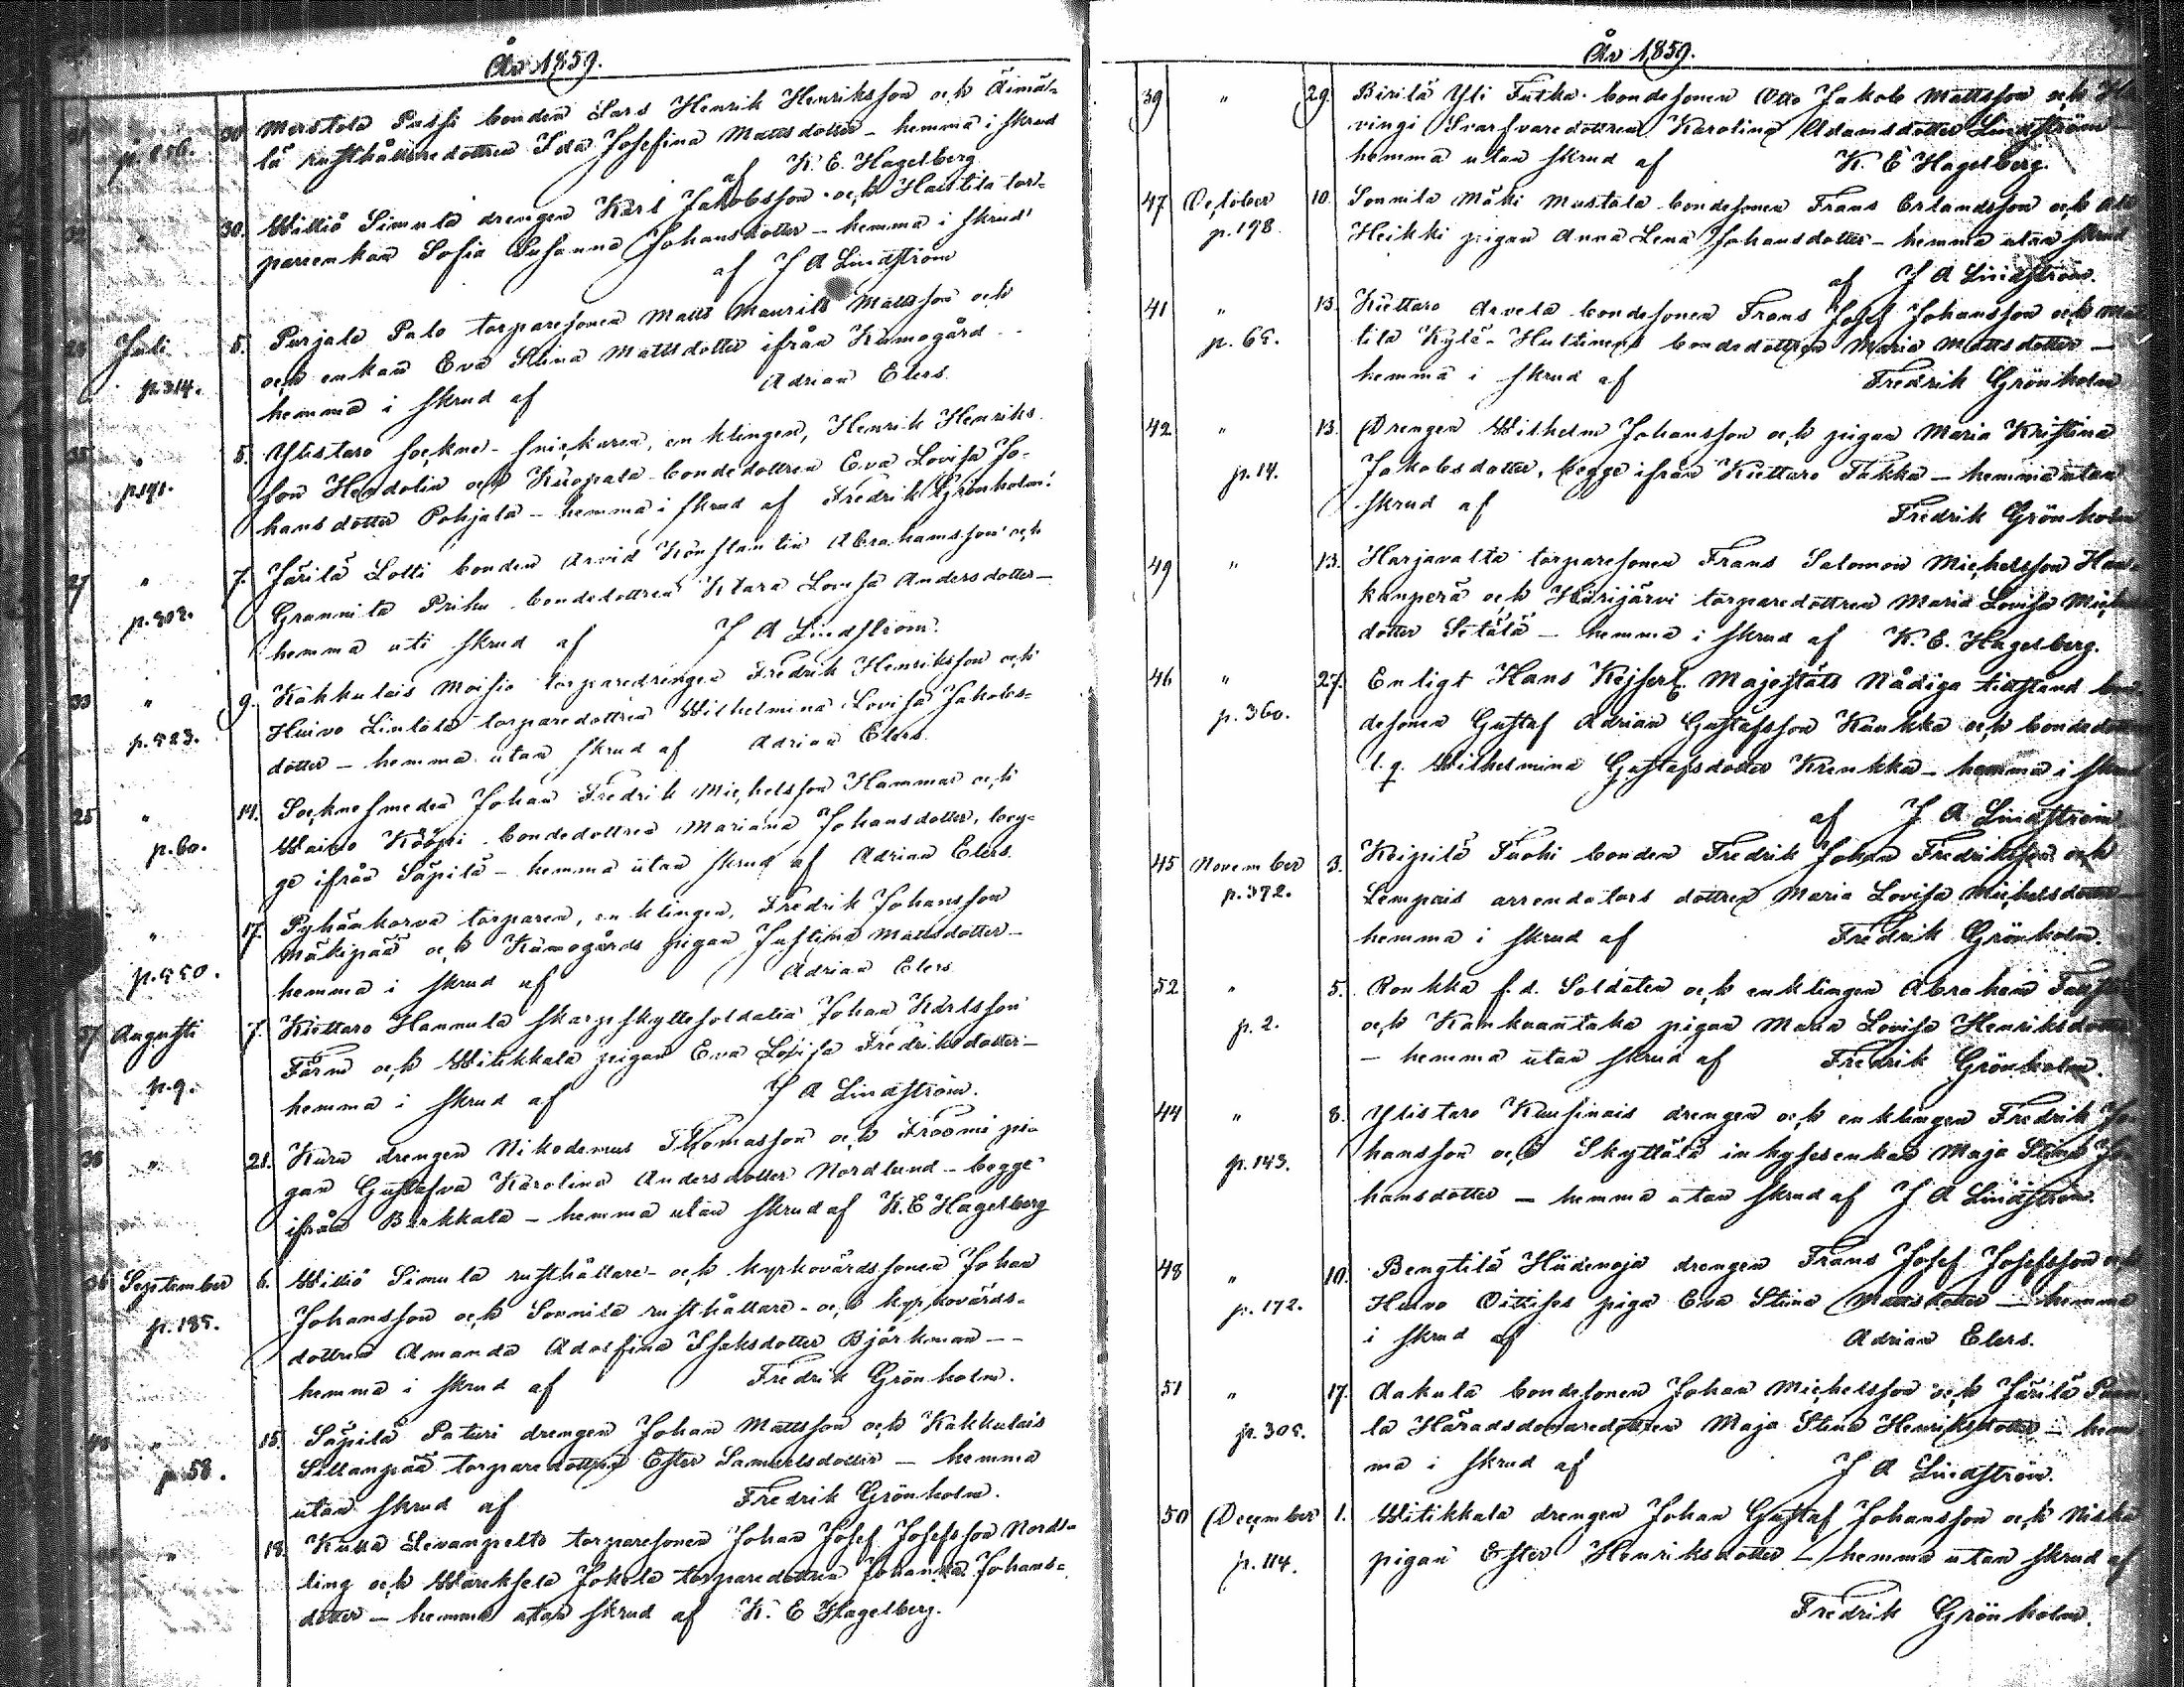 År 1859.
30. Merstola Passi bonden Lars Henrik Henriksson och Äimä-
p. 256. lä rusthållaredottren Ida Josefina Mattsdotter – hemma i skrud
af K. E. Hagelberg
" 30. Williö Simula drengen Karl Jakobsson och Hautila tor-
pareenkan Sofia Susanna Johansdotter – hemma i skrud
af J A Lindström
Juli 5. Purjala Palo torparesonen Matts Maurits Mattsson och
p. 314. enkan Eva Stina Mattsdotter ifrån Kumogård
hemma i skrud af Adrian Elers.
" 5. Ylistaro sockne-snickaren, enklingen, Henrik Henriks-
p. 191. son Hendolin och Kuopala bondedottren Eva Lovisa Jo-
hansdotter Pohjala – hemma i skrud af Fredrik Grönholm.
27 " 7. Järilä Lotti bonden Arvid Konstantin Abrahamsson och
p. 302. Grannila Priku bondedottren Klara Lovisa Andersdotter –
hemma uti skrud af J A Lindström.
33 " 9. Kakkulais Moisio torparedrengen Fredrik Henriksson och
p. 523. Huivo Lintola torparedottren Wilhelmina Lovisa Jakobs-
dotter – hemma utan skrud af Adrian Elers.
25 " 14. Socknesmeden Johan Fredrik Michelsson Hammar och
p. 60. Waivo Kööpi bondedottren Mariana Johansdotter, beg-
ge ifrån Säpilä – hemma utan skrud af Adrian Elers.
" 17. Pyhänkorva torparen, enklingen, Fredrik Johansson
p. 550. Mäkipää och Kumogårds pigan Justina Mattsdotter –
hemma i skrud af Adrian Elers
37 Augusti 7. Kiettaro Hannula skarpskyttesoldaten Johan Karlsson
p. 9. Färm och Witikkala pigan Eva Lovisa Fredriksdotter –
hemma i skrud af J A Lindström.
" 21. Kuru drengen Nikodemus Thomasson och Froomi pi-
gan Gustafva Karolina Andersdotter Nordlund – begge
ifrån Birkkala – hemma utan skrud af K. E Hagelberg
36 September 6. Williö Simula rusthållare- och kyrkovärdssonen Johan
p. 185. Johansson och Sonnila rusthållare- och kyrkovärds-
dottren Amanda Adolfina Isaksdotter Björkman –
hemma i skrud af Fredrik Grönholm.
40 " 15. Säpilä Paturi drengen Johan Mattsson och Kakkulais
p. 58. Sillanpää torparedottren Ester Samuelsdotter – hemma
utan skrud af Fredrik Grönholm.
" 18. Kukka Levanpelto torparesonen Johan Josef Josefsson Nords-
ling och Wareksela Jokela torparedottren Johanna Johans-
dotter – hemma utan skrud af K. E Hagelberg.
År 1859.
39 " 29. Birilä Yli Futka bondesonen Otto Jakob Mattsson och
vingi Svarfvaredottren Karolina Adamsdotter Lindström –
hemma utan skrud af K. E Hagelberg.
47 October 10. Sonnila Mäki Mustala bondesonen Frans Erlandsson och
p. 198. Heikki pigan Anna Lena Johansdotter – hemma utan skrud
af J A Lindström.
41 " 13. Kiettaro Arvela bondesonen Frans Josef Johansson och
p. 65. tila Kylä-Hultinens bondedottren Maria Mattsdotter –
hemma i skrud af Fredrik Grönholm
42 " 13. Drengen Wilhelm Johansson och pigan Maria Kristina
p. 14. Jakobsdotter, begge ifrån Kiettaro Takka – hemma utan
skrud af Fredrik Grönholm
49 " 13. Harjavalta torparesonen Frans Salomon Michelsson
kanperä och Hiirijärvi torparedottren Maria Lovisa
dotter Setälä – hemma i skrud af K. E. Hagelberg.
46 " 27. Enligt Hans Kejserl. Majestäts Nådiga tillstånd bon-
p. 360. desonen Gustaf Adrian Gustafsson Kaukka och bondedottren
l. q. Wilhelmina Gustafsdotter Krenkka – hemma i skrud
af J A Lindström
45 November 3. Keipilä Tuohi bonden Fredrik Johan Fredriksson och
p. 372. Lempois arrendators dottren Maria Lovisa Michelsdotter –
hemma i skrud af Fredrik Grönholm.
52 " 5. Ronkka f. d. Soldaten och enklingen Abraham
p. 2. och Kankaantaka pigan Maria Lovisa Henriksdotter
– hemma utan skrud af Fredrik Grönholm.
44 " 8. Ylistaro Kuusinais drengen och enklingen Fredrik Jo-
p. 143. hansson och Skyttälä inhysesenkan Maja Stina Jo-
hansdotter – hemma utan skrud af J A Lindström.
48 " 10. Bengtilä Hiidenoja drengen Frans Josef Josefsson och
p. 172. Huivo Oitises piga Eva Stina Mattsdotter – hemma
i skrud af Adrian Elers.
51 " 17. Aakula bondesonen Johan Michelsson och Järilä
p. 305. la Häradsdomaredottren Maja Stina Henriksdotter – hem-
ma i skrud af J A Lindström.
50 December 1. Witikkala drengen Johan Gustaf Johansson och Niska
p. 114. pigan Ester Henriksdotter – hemma utan skrud af
Fredrik Grönholm.